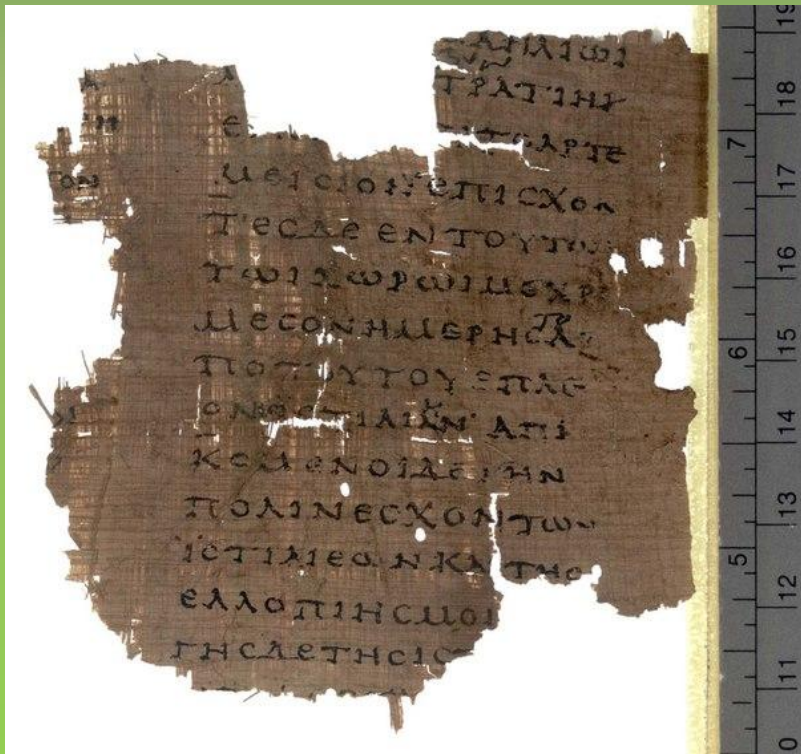 ΑΗΛΙΩΙ
ΤΡΑΤΙΗΙ
Ε ΤΟΑΡΤΕ
ΤΟΝ
ΜΕΙCΙΟΝ ΕΠΙCΧΟΝ
ΤΕCΔΕΕΝΤΟΥΤΩ
ΤΩΙΧΩΡΩΙΜΕΧΡΙ
ΜΕCΟΝΗΜΕΡΗCΑ
ΠΟΤΟΥΤΟΥΕΠΛΕ
ΟΝΕCΤΙΑΙΑΝ ΑΠΙ
ΚΟΜΕΝΟΙΔΕΤΗΝ
ΠΟΛΙΝΕCΧΟΝΤΩΝ
ΪCΤΙΑΙΕΩΝΚΑΙΤΗC
ΕΛΛΟΠΙΗCΜΟΙ
ΓΗCΔΕΤΗCΙC
7
6
5
19
18
17
16
15
14
13
12
11